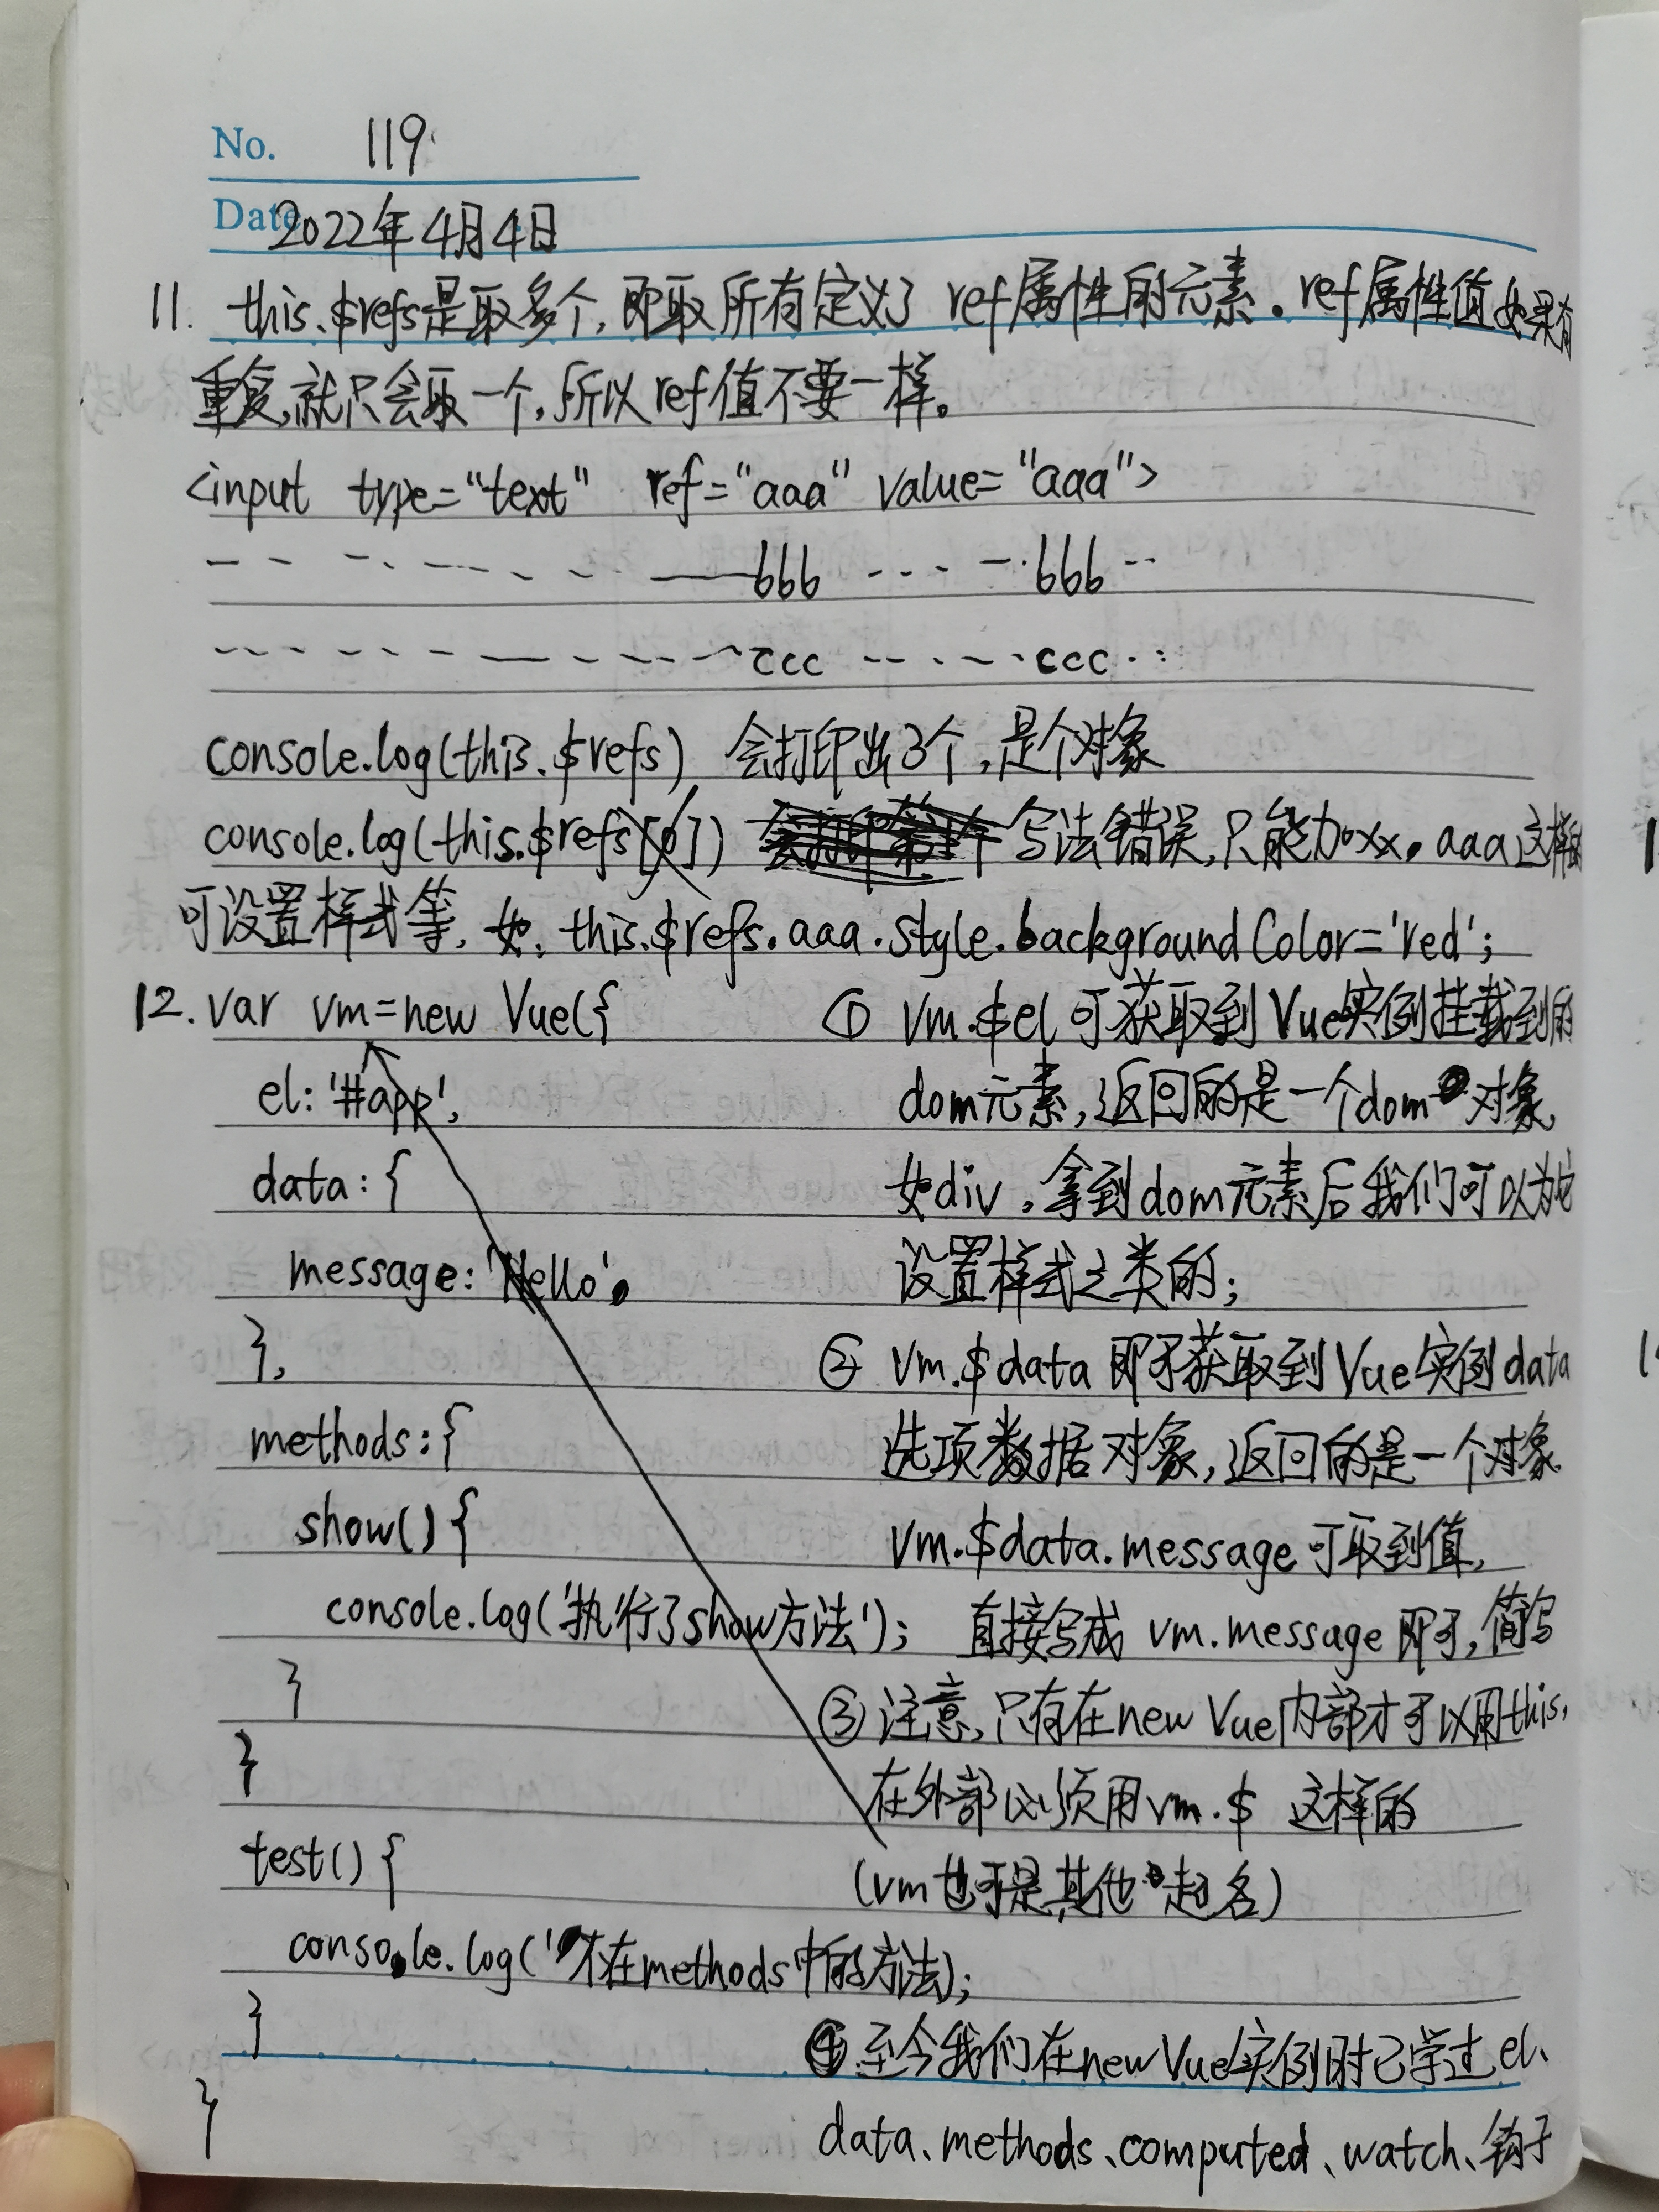 No. 119
Date 2022年4月4日
11. this.$refs是取多个,即取所有定义了ref属性的元素。ref属性值如果有
重复,就只会取一个,所以ref值不要一样。
<input type="text" ref="aaa" value="aaa">
bbb bbb
ccc ccc
console.log(this.$refs) 会打印出3个,是个对象
console.log(this.$refs[0]) 写法错误,只能加xx.aaa这样的
可设置样式等,如:this.$refs.aaa.style.backgroundColor='red';
12. var vm=new Vue({
el:'#app',
data:{
message:'Hello'
},
methods:{
show(){
console.log('执行了show方法');
}
}
test(){
console.log('不在methods中的方法);
}
}
① vm.$el可获取到Vue实例挂载到的
dom元素,返回的是一个dom对象,
如div,拿到dom元素后我们可以为它
设置样式之类的;
② vm.$data即可获取到Vue实例data
选项数据对象,返回的是一个对象
vm.$data.message可取到值,
直接写成 vm.message即可,简写
③注意,只有在new Vue内部才可以用this,
在外部必须用vm.$ 这样的
(vm也可是其他起名)
④至今我们在new Vue实例时已学过el、
data、methods、computed、watch、钩子